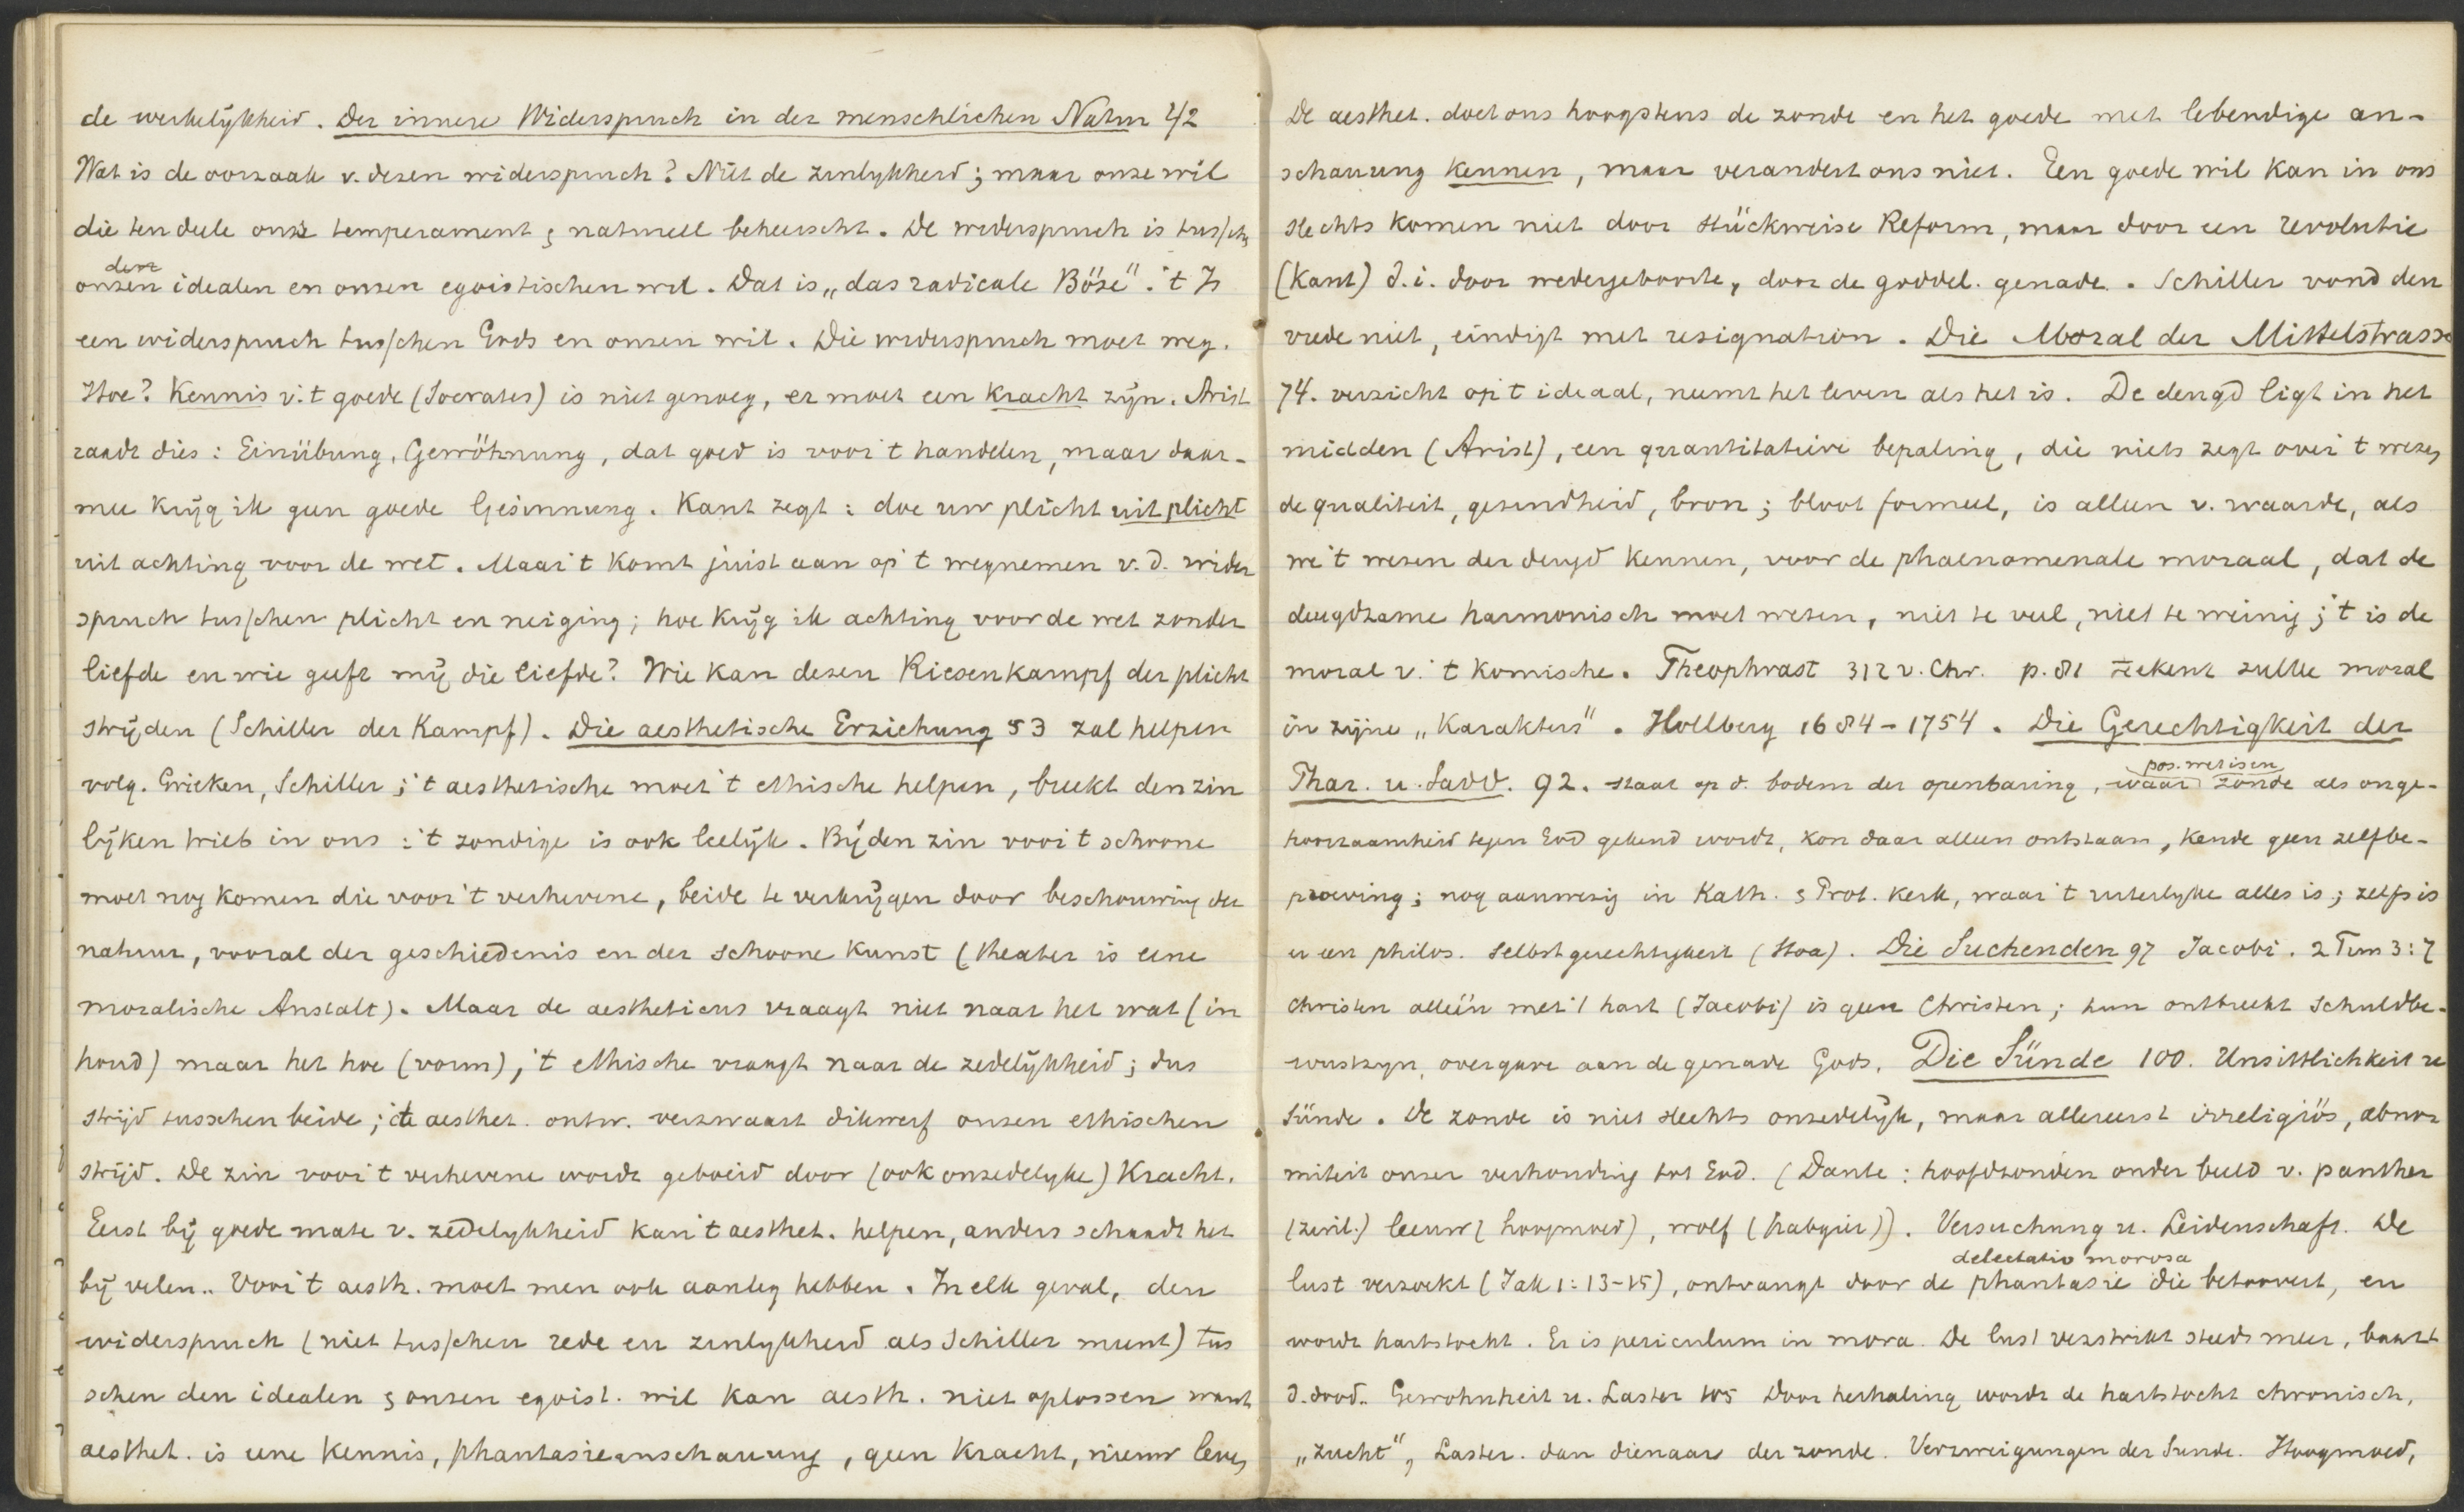 de werkelijkheid. Der innere Widerspruch in der menschlichen Natur 42
Wat is de oorzaak v. dezen widerspruch? Niet de zinlykheid; maar onze wil
die ten deele onze temperament & naturell beheerscht. De widerspruch is tusschen
den
onzen idealen en onzen egoistischen wil. Dat is „das radicale Böse". 't Is
een widerspruch tusschen Gods en onzen wil. Die widerspruch moet weg.
Hoe? Kennis v. 't goede (Socrates) is niet genoeg, er moet een kracht zijn. Arist
raadt dies: Einübung, Gewöhnung, dat goed is voor 't handelen, maar daar-
mee krijg ik geen goede Gesinnung. Kant zegt: doe uw plicht uit plicht
uit achting voor de wet. Maar 't komt juist aan op 't wegnemen v. d. wider
spruch tusschen plicht en neiging; hoe krijg ik achting voor de wet zonder
liefde en wie geeft mij die liefde? Wie kan dezen Riesenkampf der plicht
strijden (Schiller der Kampf). Die aesthetische Erziehung 53 zal helpen
volg. Grieken, Schiller; 't aesthetische moet 't ethische helpen, breekt den zin
lijken trieb in ons: 't zondige is ook leelijk. Bij den zin voor 't schoone
moet nog komen die voor 't verhevene, beide te verkrijgen door beschouwing der
natuur, vooral der geschiedenis en der schoone kunst (theater is eene
moralische Anstalt). Maar de aestheticus vraagt niet naar het wat (in
houd) maar het hoe (vorm), 't ethische vraagt naar de zedelijkheid; dus
strijd tusschen beide; de aesthet. ontw. verzwaart dikwerf onzen ethischen
strijd. De zin voor 't verhevene wordt geboeid door (ook onzedelyke) Kracht.
Eerst bij goede mate v. zedelykheid kan 't aesthet. helpen, anders schaadt het
bij velen.. Voor 't aesth. moet men ook aanleg hebben. In elk geval, den
widerspruch (niet tusschen rede en zinlykheid als Schiller meent) tus
schen den idealen & onzen egoist. wil kan aesth. niet oplossen want
aesthet. is eene kennis, phantasieanschauung, geen kracht, nieuw leven,
De aesthet. doet ons hoogstens de zonde en het goede met lebendige an-
schauung kennen, maar verandert ons niet. Een goede wil kan in ons
slechts komen niet door stückweise Reform, maar door een revolutie
(Kant) d.i. door wedergeboorte, door de goddel. genade. Schiller vond den
vrede niet, eindigt met resignation. Die Moral der Mittelstrasse
74. verzicht op 't ideaal, neemt het leven als het is. De deugd ligt in het
midden (Arist), een quantitatieve bepaling, die niets zegt over 't wezen,
de qualiteit, gezindheid, bron; bloot formeel, is alleen v. waarde, als
we 't wezen der deugd kennen, voor de phaenomenale moraal, dat de
deugdzame harmonisch moet wezen, niet te veel, niet te weinig; 't is de
moral v. 't komische. Theophrast 312 v. Chr. p. 81 tekent zulke moral
in zijne „Karakters". Hollberg 1684-1754. Die Gerechtigkeit der
pos. wet is en
Phar. u. Sadd. 92. staat op d. bodem der openbaring, waar zonde als onge-
hoorzaamheid tegen God gekend wordt, kon daar alleen ontstaan, kende geen zelfbe-
proeving; nog aanwezig in Kath. & Prot. kerk, waar 't uiterlyke alles is; zelfs is
er een philos. Selbstgerechtigkeit (Stoa). Die Suchenden 97 Jacobi. 2 Tim 3:7
Christen alleen met 't hart (Jacobi) is geen Christen; hun ontbreekt schuldbe-
wustzyn, overgave aan de genade Gods. Die Sünde 100. Unsittlichkeit u
Sünde. De zonde is niet slechts onzedelijk, maar allereerst irreligiös, abnor
miteit onzer verhouding tot God. (Dante: hoofdzonden onder beeld v. panther
(zinl.) leeuw (hoogmoed), wolf (habgier)). Versuchung u. Leidenschaft. De
delectatio morosa
lust verzoekt (Jak 1:13-15), ontvangt door de phantasie die betoovert, en
wordt hartstocht. Er is periculum in mora. De lust verstrikt steeds meer, baart
d. dood.. Gewohnheit u. Laster 105 Door herhaling wordt de hartstocht chronisch,
„zucht", Laster. dan dienaar der zonde. Verzweigungen der Sunde. Hoogmoed,